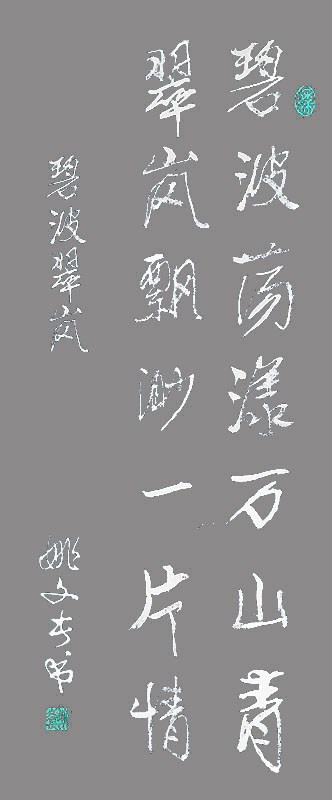 碧波荡漾万山青
翠岚飘渺一片情
碧波翠岚
姚文春书